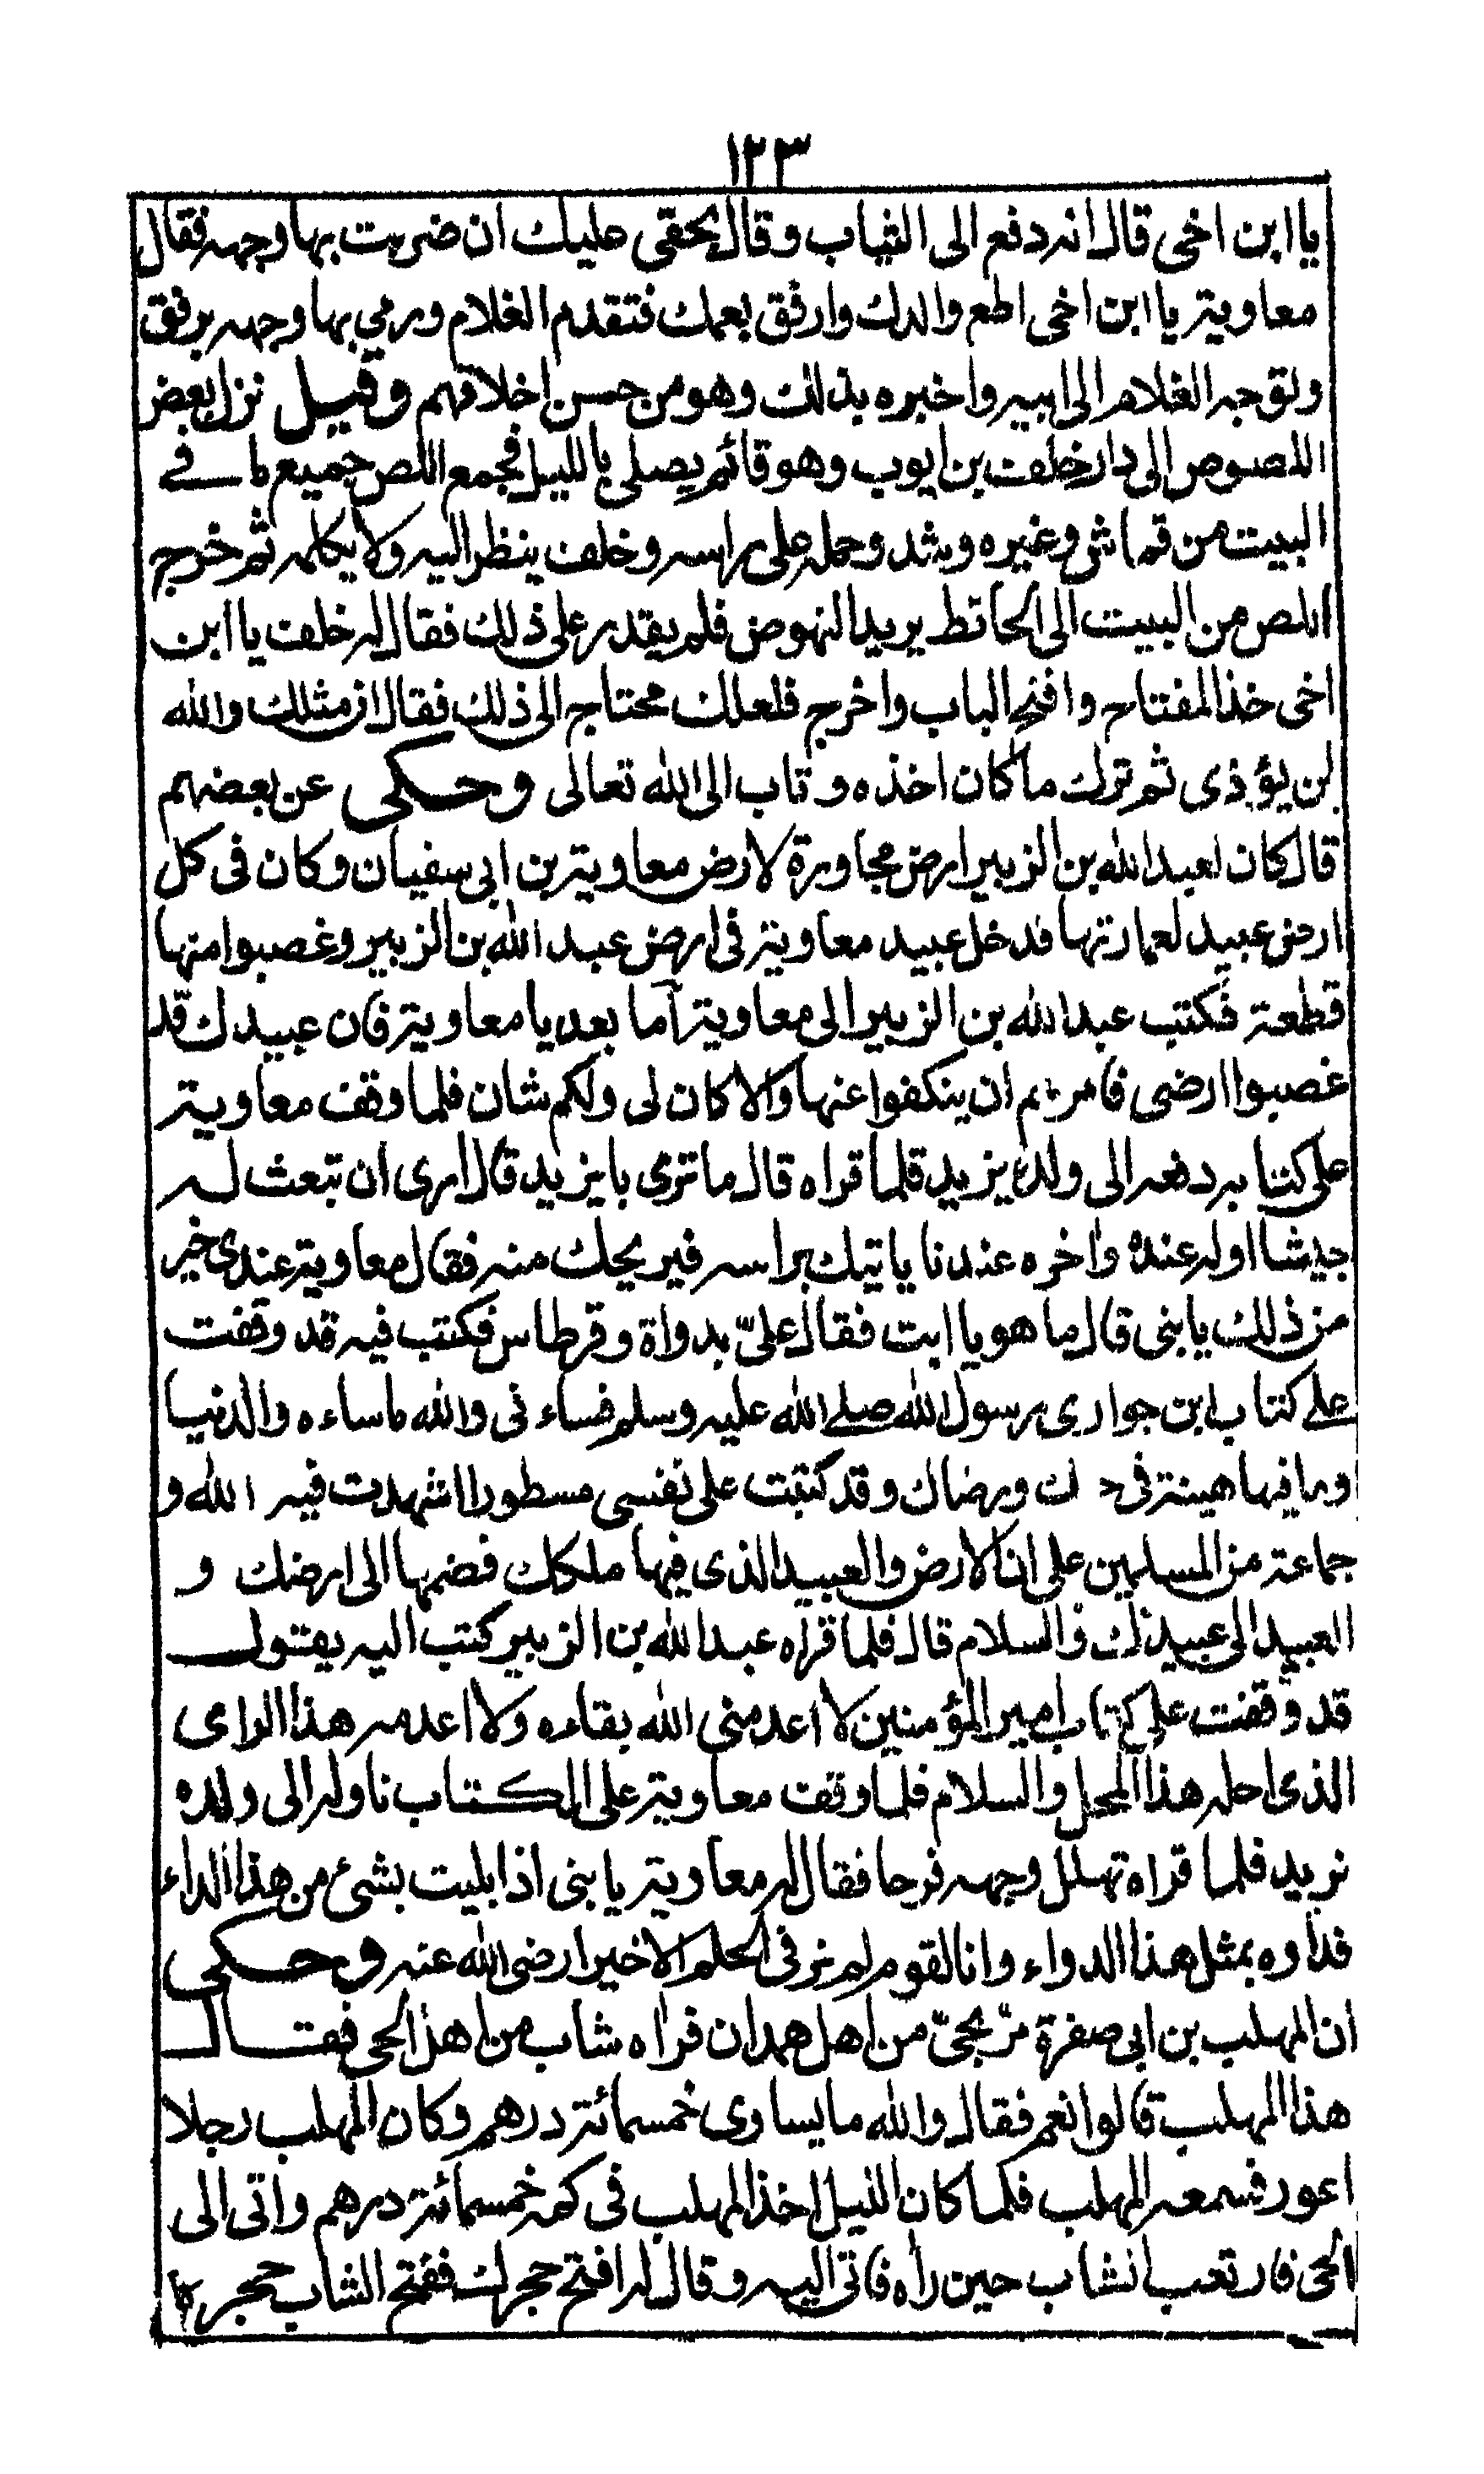 ١٢٣
يا ابن اخى قال انه دفع الى الثياب وقال بحقى عليك ان ضربت بها وجهه فقال
معاوية يا ابن اخى اطع والدك وارفق بعمك فتقدم الغلام ورمي بها وجهه برفق
وتوجه الغلام الى ابيه واخبره بذلك وهو من حسن اخلاقهم وقيل نزل بعض
اللصوص الى دار خلف بن ايوب وهو قائم يصلى بالليل فجمع اللص جميع ما في
البيت من قماش وغيره وشد وحمله على راسه وخلف ينظر اليه ولا يكلمه ثم خرج
اللص من البيت الى الحائط يريد النهوض فلم يقدر على ذلك فقال له خلف يا ابن
اخى خذ المفتاح وافتح الباب واخرج فلعلك محتاج الى ذلك فقال ان مثلك والله
لن يؤذى ثم ترك ما كان اخذه وتاب الى الله تعالى وحكى عن بعضهم
قال كان لعبد الله بن الزبير ارض مجاورة لارض معاوية بن ابى سفيان وكان فى كل
ارض عبيد لعمارتها فدخل عبيد معاوية فى ارض عبد الله بن الزبير وغصبوا منها
قطعة فكتب عبد الله بن الزبير الى معاوية اما بعد يا معاوية فان عبيدك قد
غصبوا ارضى فامرهم ان ينكفوا عنها والا كان لى ولكم شان فلما وقف معاوية
على كتابه دفعه الى ولده يزيد فلما قراه قال ما ترى يا يزيد قال ارى ان تبعث له
جيشا اوله عنده واخره عندنا ياتيك براسه فيريحك منه فقال معاوية عندى خير
من ذلك يا بنى قال ما هو يا ابت فقال علىّ بدواة وقرطاس فكتب فيه قد وقفت
على كتاب ابن حوارى رسول الله صلى الله عليه وسلم فساءنى والله ما ساءه والدنيا
وما فيها هينة فى ورضاك وقد كتبت على نفسى مسطورا اشهدت فيه الله و
جماعة من المسلمين على ان الارض والعبيد الذى فيها ملكك فضمها الى ارضك و
العبيد الى عبيدك والسلام قال فلما قراه عبد الله بن الزبير كتب اليه يقول
قد وقفت على كتاب امير المؤمنين لا اعدمنى الله بقاءه ولا اعدمه هذا الراى
الذى احله هذا المحل والسلام فلما وقف معاوية على الكتاب ناوله الى ولده
يزيد فلما قراه تهلل وجهه فرحا فقال له معاوية يا بنى اذا بليت بشئ من هذا الداء
فداوه بمثل هذا الدواء وانا لقوم لم نر فى الحلم الا خيرا رضى الله عنه وحكى
ان المهلب بن ابى صفرة مرّ بحىّ من اهل همدان فراه شاب من اهل الحى فقال
هذا المهلب قالوا نعم فقال والله ما يساوى خمسمائة درهم وكان المهلب رجلا
اعور فسمعه المهلب فلما كان الليل اخذ المهلب فى كمه خمسمائة درهم واتى الى
الحى فارتعب الشاب حين راه فاتى اليه وقال له افتح حجرك ففتح الشاب حجره